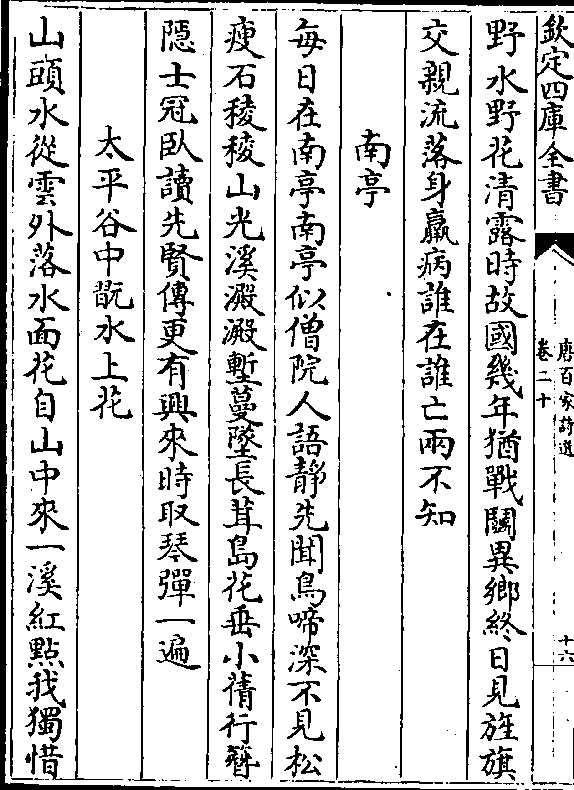 欽定四庫全書
唐百家詩選
卷二十
十六
野水野花清露時故國幾年猶戰鬬異鄉終日見旌旗
交親流落身羸病誰在誰亡兩不知
南亭
每日在南亭南亭似僧院人語靜先聞鳥啼深不見松
瘦石稜稜山光溪澱澱塹蔓墜長茸島花垂小蒨行簪
隱士冠臥讀先賢傳更有興來時取琴彈一遍
太平谷中翫水上花
山頭水從雲外落水面花自山中來一溪紅點我獨惜